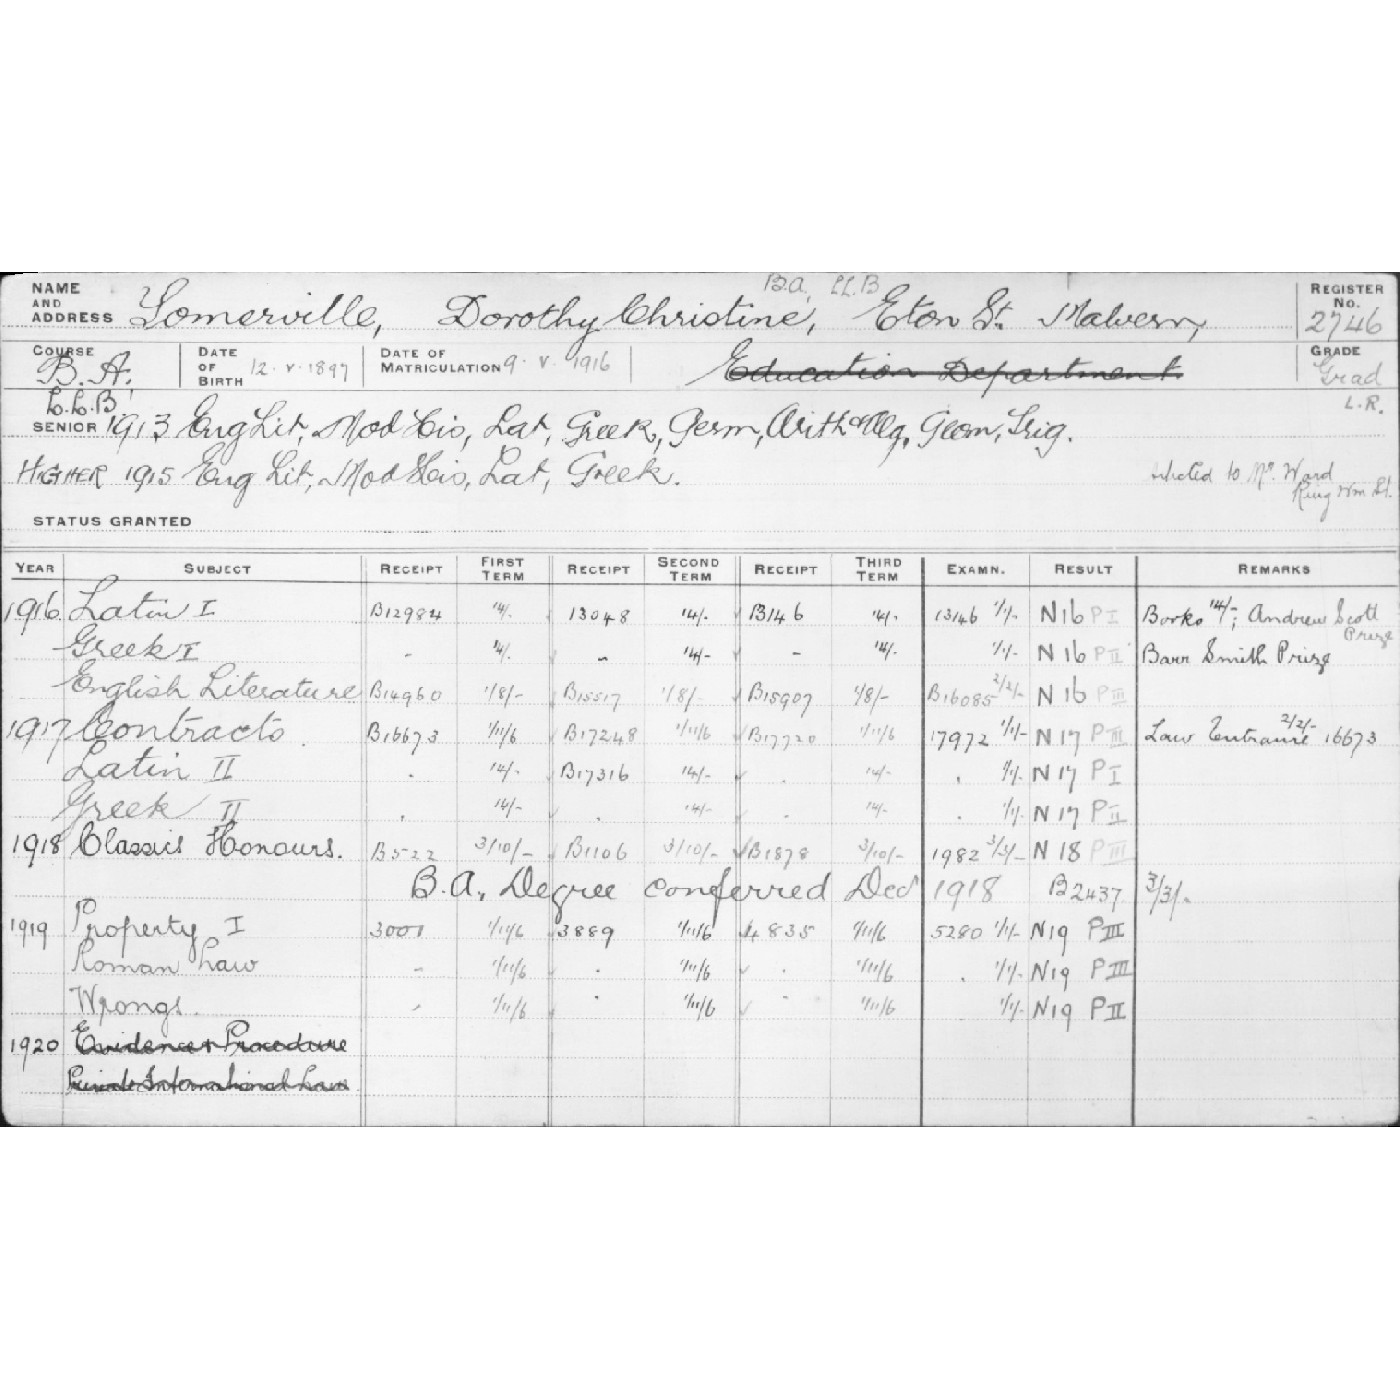 B.A. LL.B
NAME AND ADDRESS Somerville, Dorothy Christine, Eton St. Malvern,
REGISTER No. 2746
COURSE B.A. L.L.B. DATE OF BIRTH 12.V.1897 DATE OF MATRICULATION 9.V.1916 Education Department GRADE Grad
L.R.
SENIOR 1913 Eng Lit, Mod His, Lat, Greek, Germ, Arith & Alg, Geom, Trig.
HIGHER 1915 Eng Lit, Mod His, Lat, Greek.
to Mr. Ward
King Wm St.
STATUS GRANTED
YEAR SUBJECT RECEIPT FIRST TERM RECEIPT SECOND TERM RECEIPT THIRD TERM EXAMN. RESULT REMARKS
1916 Latin I B12984 14/- 13048 14/- B146 14/- 13146 1/1/- N16 P I Books 14/-; Andrew Scott Prize
Greek I - 14/- - 14/- - 14/- 1/1/- N16 P II Barr Smith Prize
English Literature B14960 1/8/- B15517 1/8/- B15907 1/8/- B16085 2/2/- N16 P III
1917 Contracts. B16673 1/11/6 B17248 1/11/6 B17720 1/11/6 17972 1/1/- N17 P III Law Entrance 2/2/- 16673
Latin II . 14/- B17316 14/- . 14/- . 1/1/- N17 P I
Greek II . 14/- . 14/- . 14/- . 1/1/- N17 P II
1918 Classics Honours. B522 3/10/- B1106 3/10/- B1878 3/10/- 1982 3/3/- N18 P III
B.A. Degree conferred Dec 1918 B2437 3/3/-
1919 Property I 3001 1/11/6 3889 1/11/6 4835 1/11/6 5280 1/1/- N19 P III
Roman Law - 1/11/6 . 1/11/6 . 1/11/6 . 1/1/- N19 P III
Wrongs. - 1/11/6 . 1/11/6 - 1/11/6 1/1/- N19 P II
1920 Evidence & Procedure
Private International Law